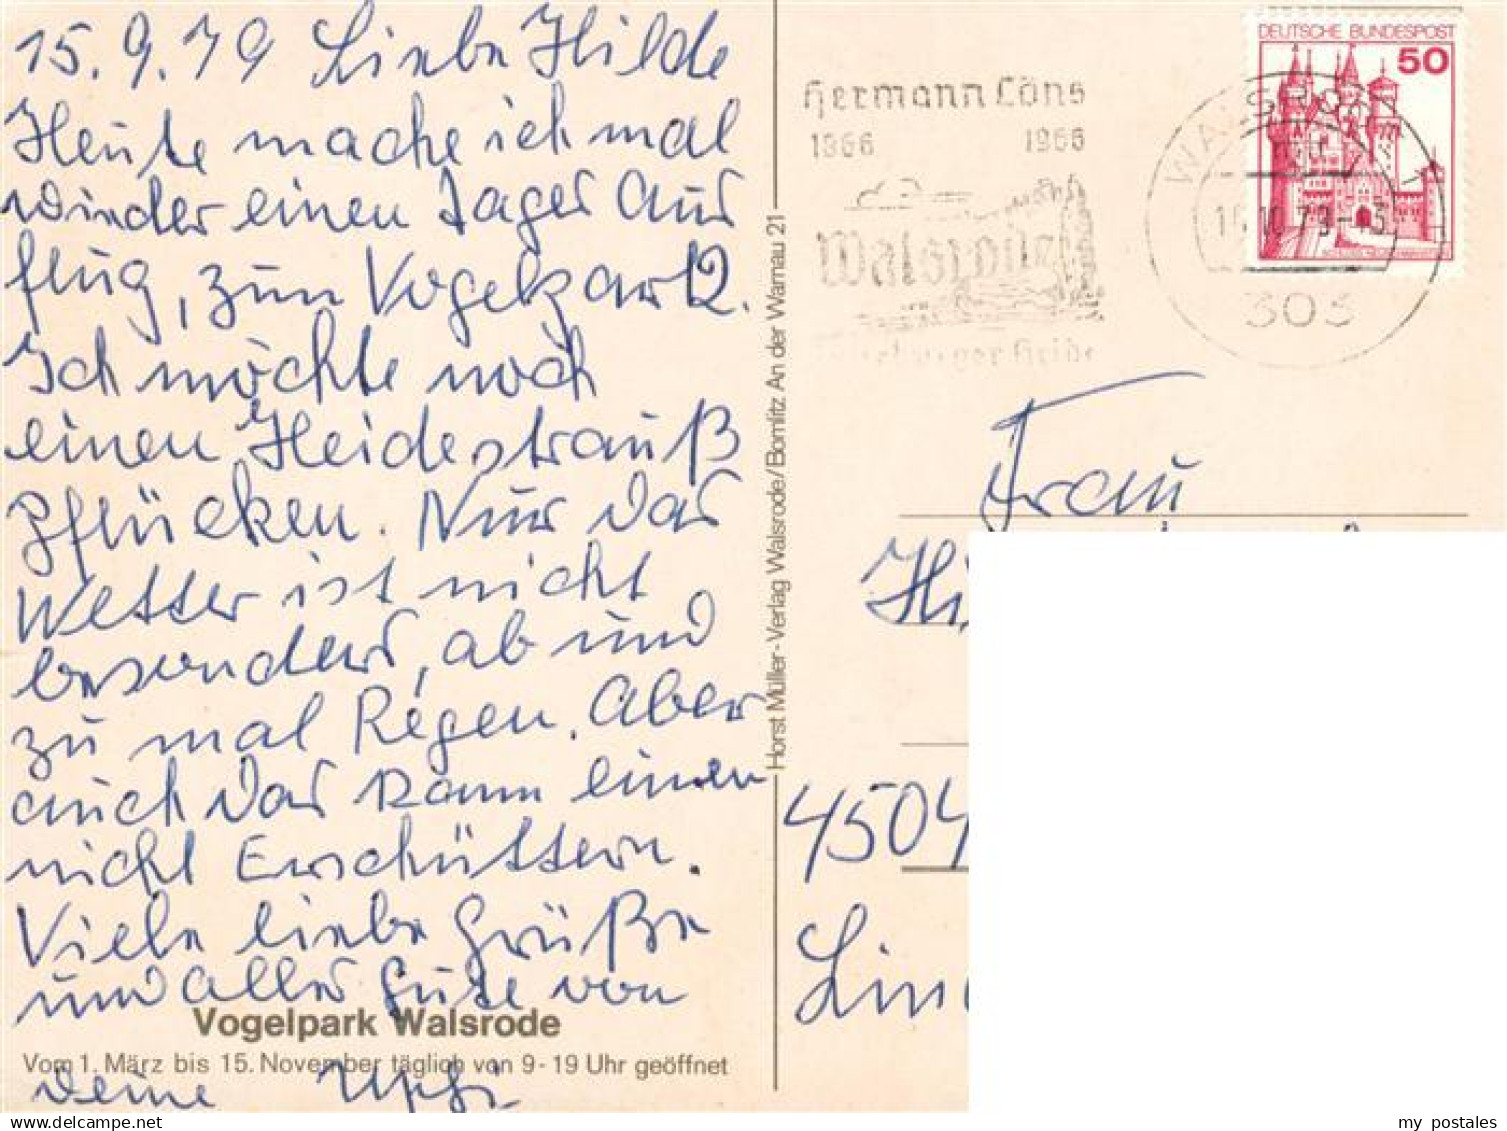 15.9.79 Liebe Hilde
Heute mache ich mal
wieder einen Tages Aus
flug, zum Vogelpark.
Ich möchte noch
einen Heidestrauß
Pflücken. Nur das
Wetter ist nicht
besonders, ab und
zu mal Regen. Aber
auch das kann einen
nicht Erschüttern.
Viele liebe Grüße
und alles Gute von
Vogelpark Walsrode
Vom 1. März bis 15. November täglich von 9-19 Uhr geöffnet
deine
Horst Müller-Verlag Walsrode/Bomlitz An der Warnau 21
Hermann Löns
1866 1966
Walsrode
Lüneburger Heide
DEUTSCHE BUNDESPOST
50
WALSRODE 1
.10.79-13
303
Frau
Hi
4504
Lin
my postales